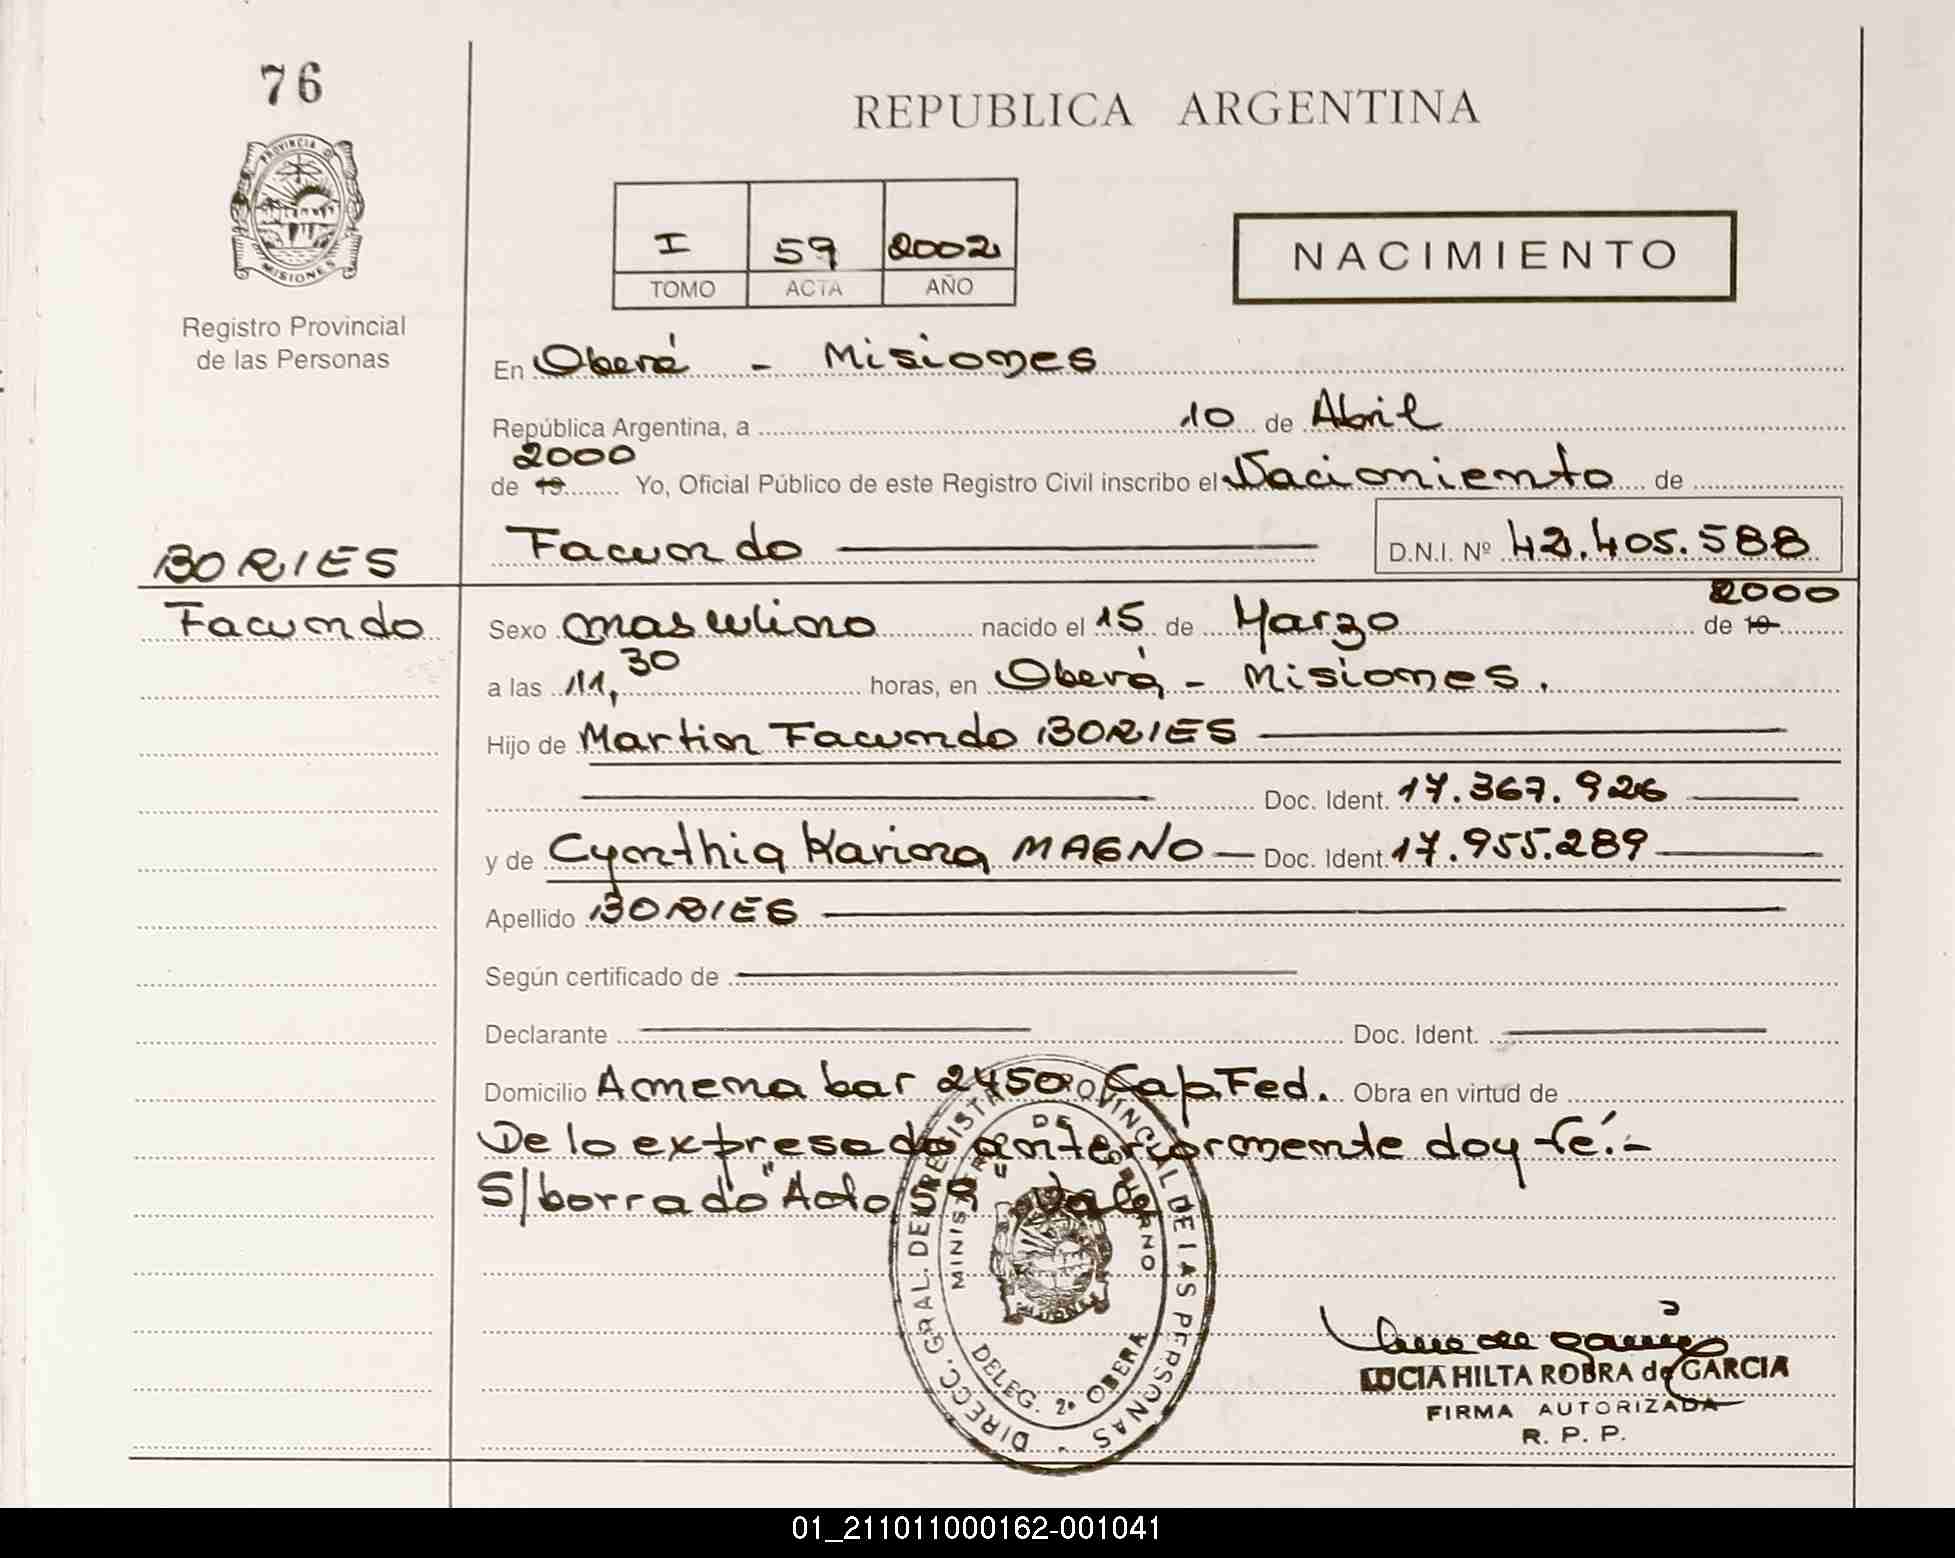 76
REPUBLICA ARGENTINA
PROVINCIA D
MISIONES
Registro Provincial
de las Personas
I 59 2002
TOMO ACTA AÑO
NACIMIENTO
En Oberá - Misiones
República Argentina, a 10 de Abril
2000
de 19 Yo, Oficial Público de este Registro Civil inscribo el Nacimiento de
Facundo D.N.I. Nº 42.405.588
BORIES
Facundo
2000
Sexo masculino nacido el 15 de Marzo de 19
a las 11,30 horas, en Oberá - Misiones.
Hijo de Martin Facundo BORIES
Doc. Ident. 17.367.926
y de Cynthia Karina MAGNO Doc. Ident. 17.955.289
Apellido BORIES
Según certificado de
Declarante Doc. Ident.
Domicilio Amenabar 2450 Cap.Fed. Obra en virtud de
De lo expresado anteriormente doy fé.-
S/borrado "Acto 59" Vale
DIRECC. GRAL. DEL REGISTRO PROVINCIAL DE LAS PERSONAS -
MINISTERIO DE GOBIERNO
MISIONES
DELEG. 2º OBERA
LUCIA HILTA ROBRA de GARCIA
FIRMA AUTORIZADA
R. P. P.
01_211011000162-001041